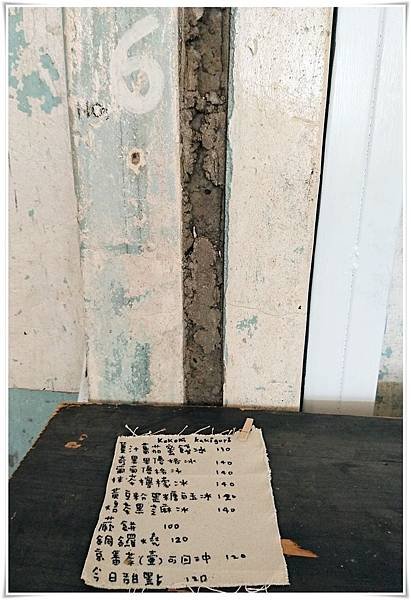 6
NO.
KoKoni KaKigori
薑汁蕃茄蜜餞冰 130
奇異果優格冰 140
葡萄優格冰 140
抹茶檸檬冰 140
黃豆粉黑糖白玉冰 120
焙茶黑芝麻冰 140
蕨餅 100
銅鑼燒 120
京番茶(壺)可回沖 120
今日甜點 120